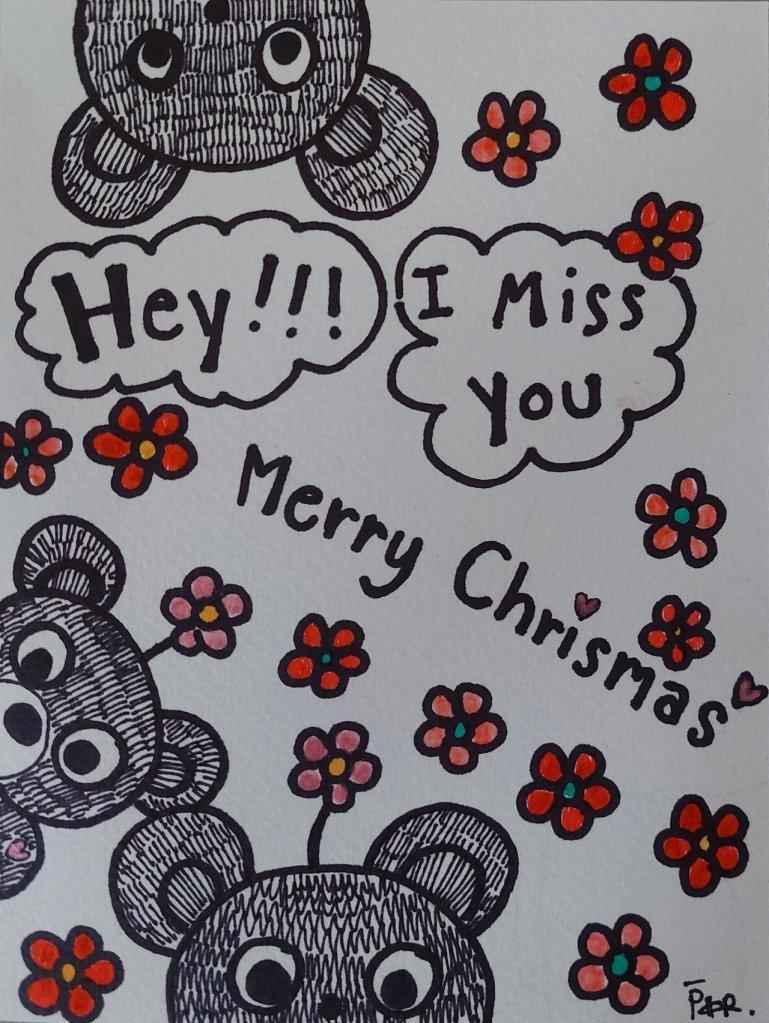 Hey!!!
I Miss
You
Merry Chrismas